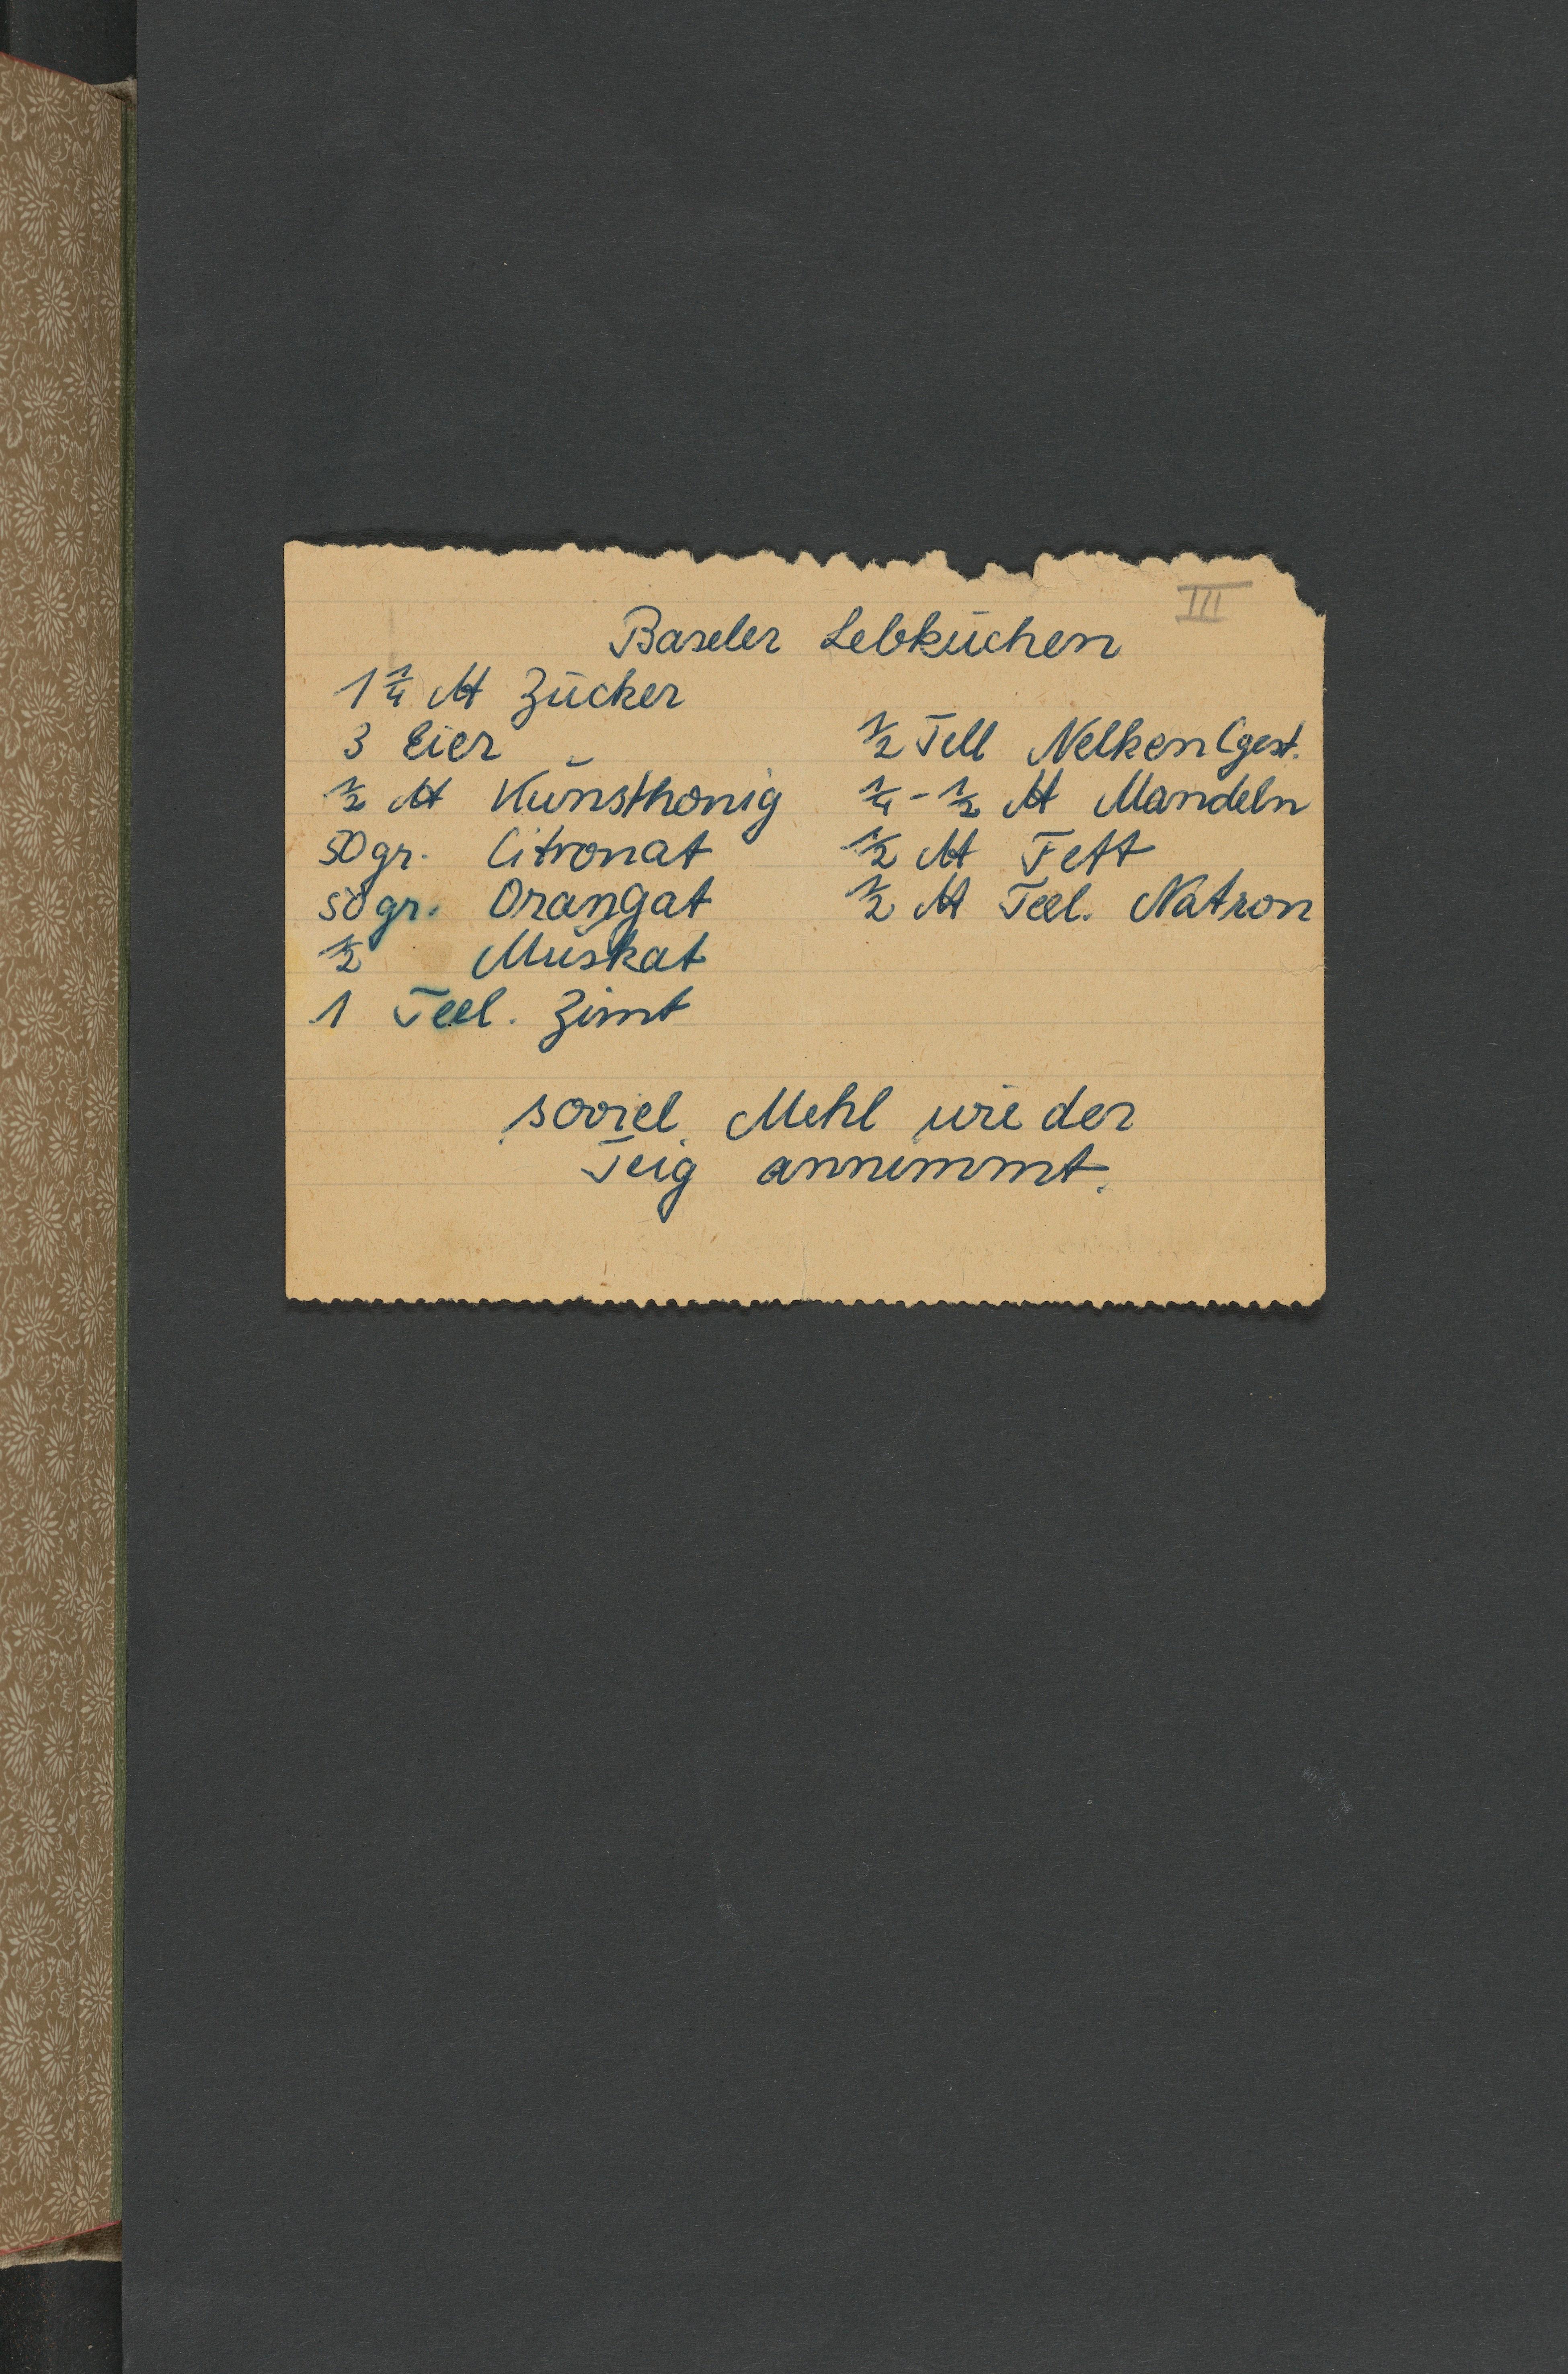 III
Baseler Lebkuchen
1 1/4 ℔ Zucker
3 Eier
1/2 ℔ Kunsthonig
50 gr. Citronat
50 gr. Orangat
1/2 Muskat
1 Teel. Zimt
1/2 Tell Nelken (gest.
1/4 - 1/2 ℔ Mandeln
1/2 ℔ Fett
1/2 ℔ Teel. Natron
soviel Mehl wie der
Teig annimmt.